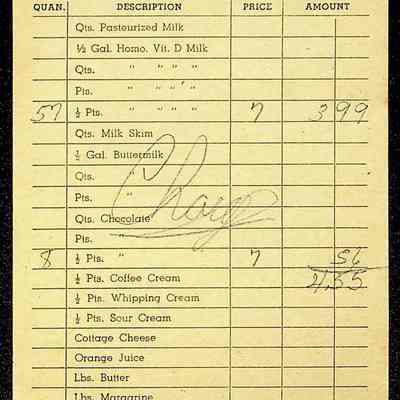 QUAN. DESCRIPTION PRICE AMOUNT
Qts. Pasteurized Milk
½ Gal. Homo. Vit. D Milk
Qts. " " " "
Pts. " " " "
57 ½ Pts. " " " " 7 3 99
Qts. Milk Skim
½ Gal. Buttermilk
Qts. "
Pts. "
Charge
Qts. Chocolate
Pts. "
8 ½ Pts. " 7 56
½ Pts. Coffee Cream 4 55
½ Pts. Whipping Cream
½ Pts. Sour Cream
Cottage Cheese
Orange Juice
Lbs. Butter
Lbs. Margarine